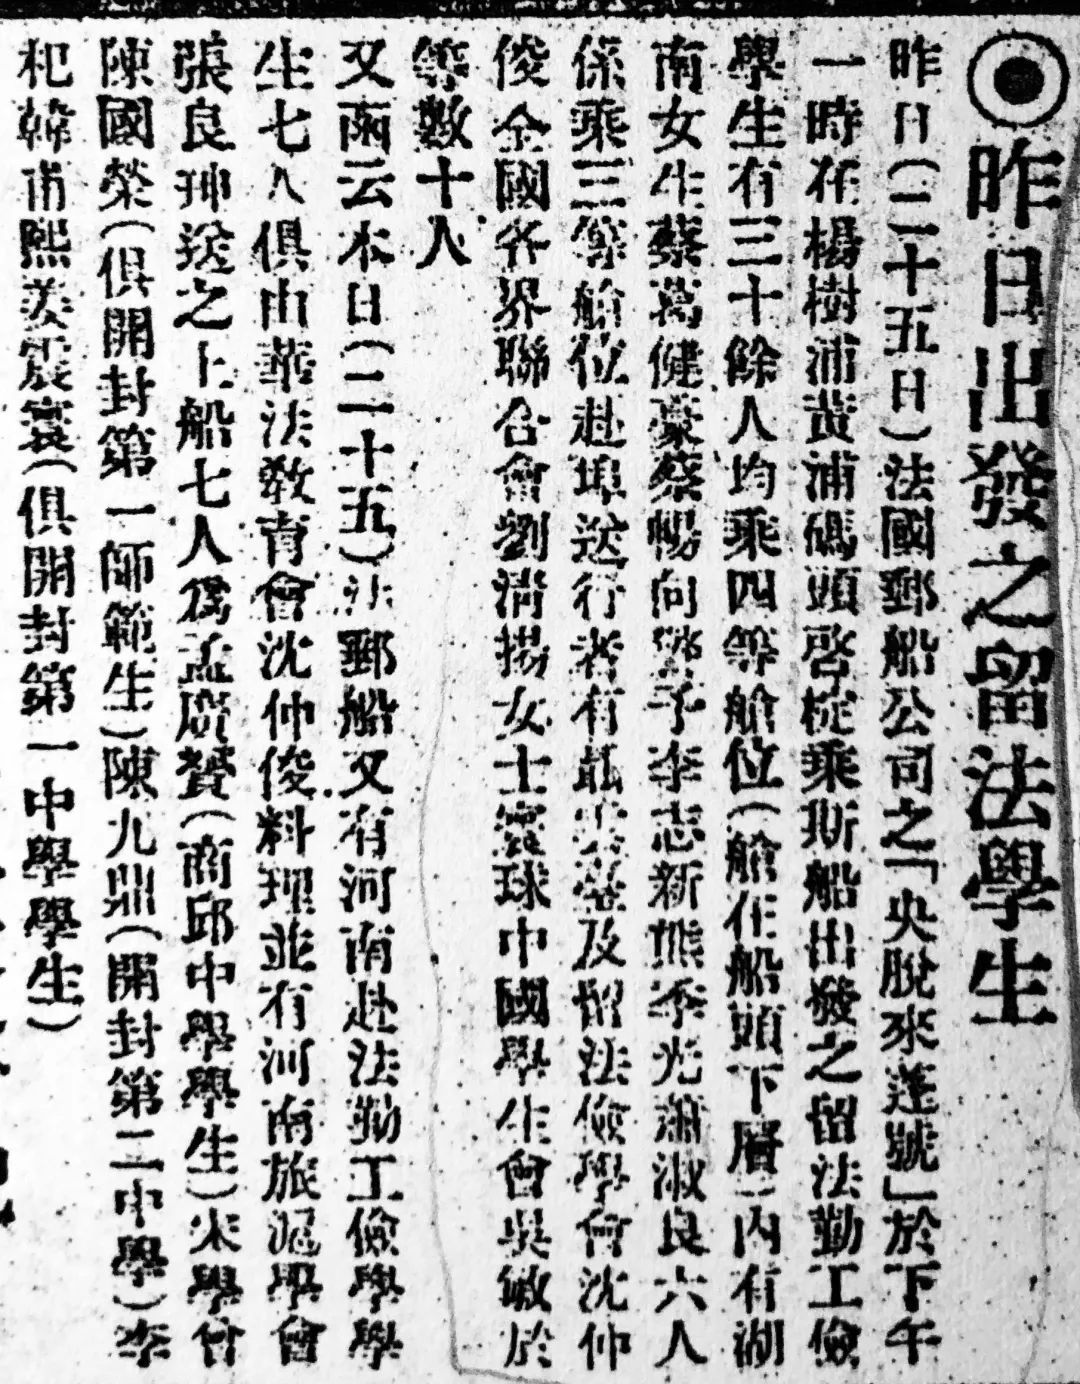 ◉昨日出發之留法學生
昨日(二十五日)法國郵船公司之「央脫來蓬號」於下午
一時在楊樹浦黃浦碼頭啓椗乘斯船出發之留法勤工儉
學生有三十餘人均乘四等艙位(艙在船頭下層)內有湖
南女生蔡葛健豪蔡暢向警予李志新熊季光蕭淑良六人
係乘三等艙位赴埠送行者有聶雲臺及留法儉學會沈仲
俊全國各界聯合會劉淸揚女士寰球中國學生會吳敏於
等數十人
又函云本日(二十五)法郵船又有河南赴法勤工儉學學
生七人俱由華法敎育會沈仲俊料理並有河南旅滬學會
張良珅送之上船七人爲孟廣贊(商邱中學學生)宋學曾
陳國榮(俱開封第一師範生)陳九鼎(開封第二中學)李
杞韓甫熙姜宸寰(俱開封第一中學學生)